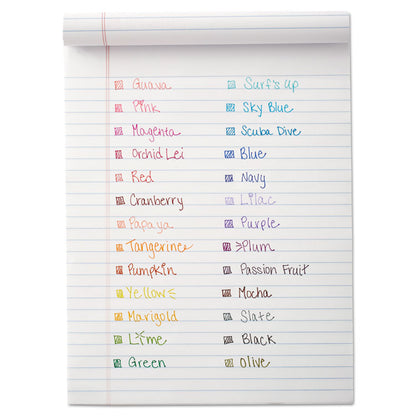 Guava
Pink
Magenta
Orchid Lei
Red
Cranberry
Papaya
Tangerine
Pumpkin
Yellow
Marigold
Lime
Green
Surf's Up
Sky Blue
Scuba Dive
Blue
Navy
Lilac
Purple
Plum
Passion Fruit
Mocha
Slate
Black
Olive